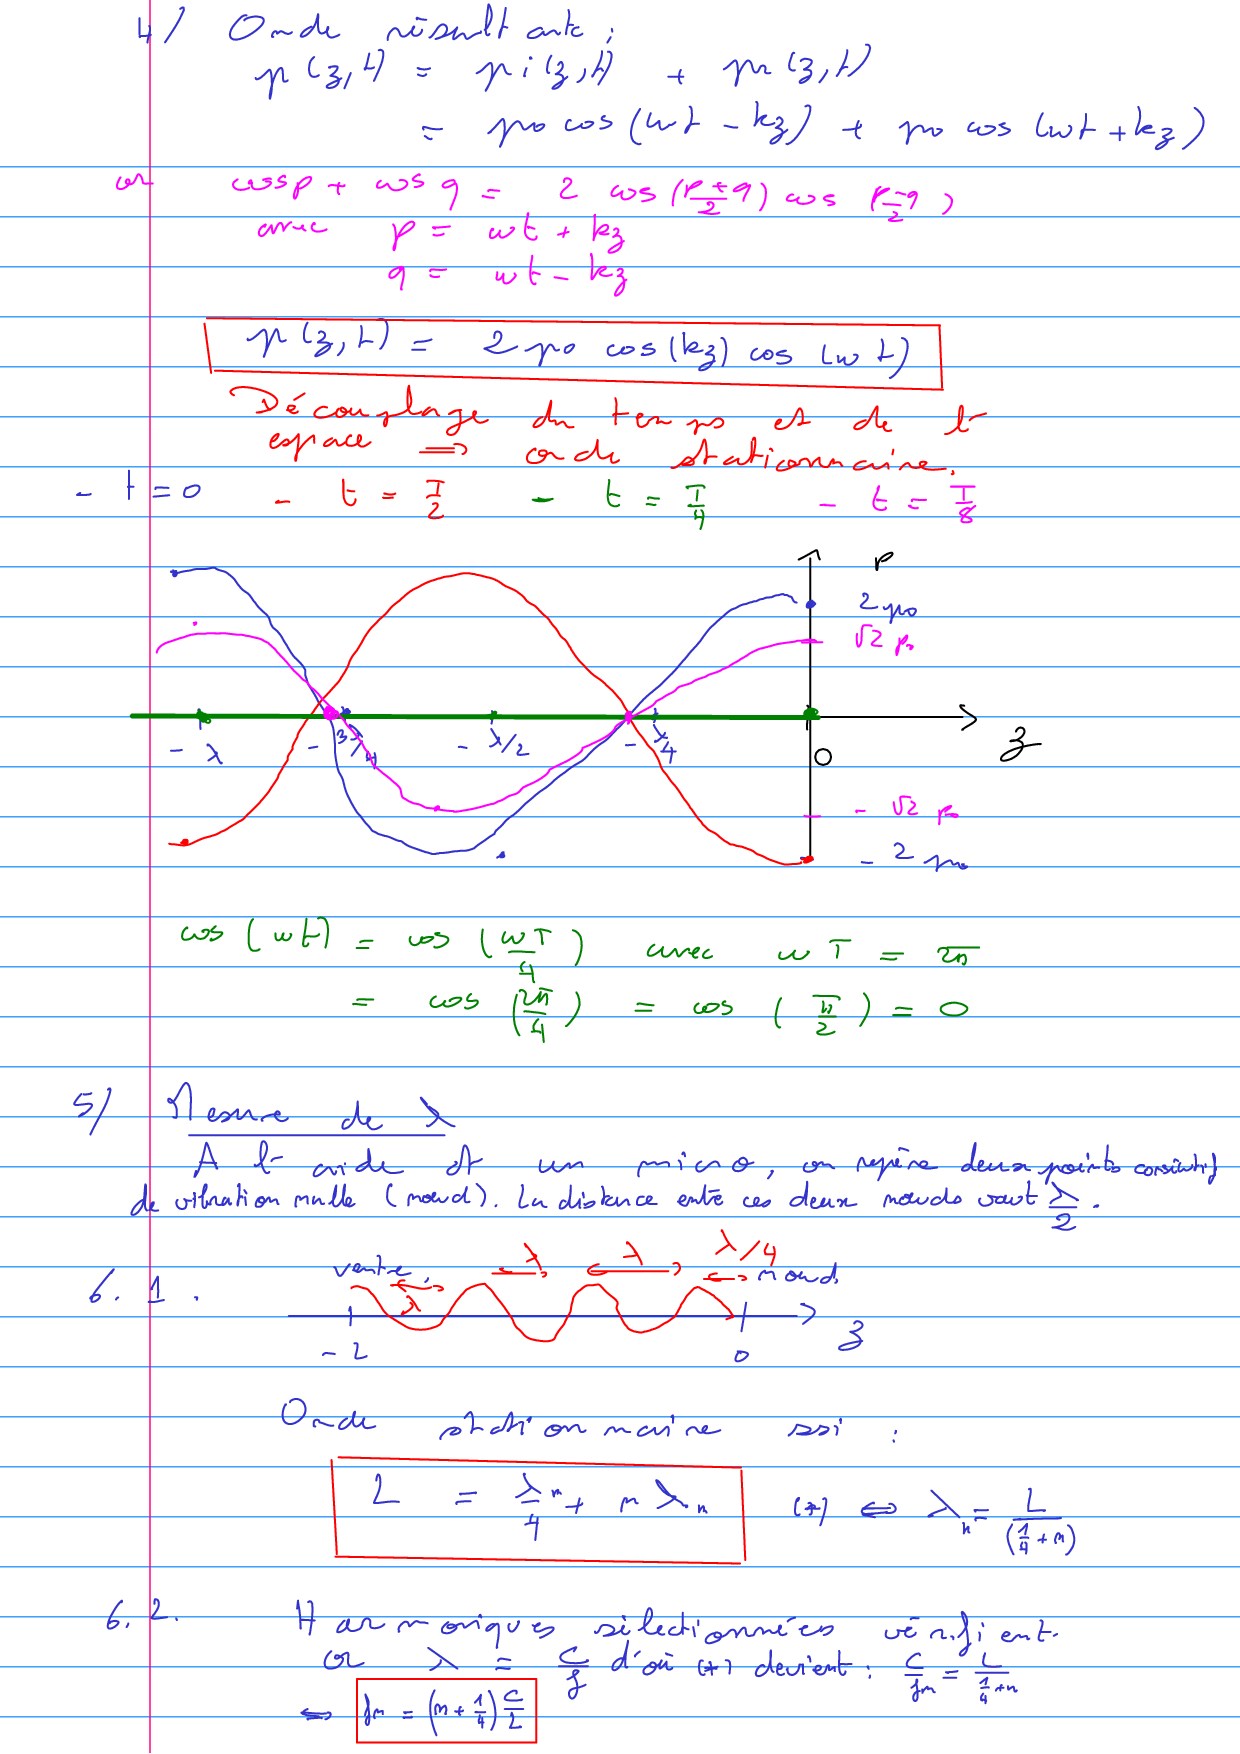 4/ Onde résultante :
p(z,t) = pi(z,t) + pr(z,t)
= po cos(wt - kz) + po cos(wt + kz)
or cosp + cos q = 2 cos(p+q/2) cos(p-q/2)
avec p = wt + kz
q = wt - kz
p(z,t) = 2 po cos(kz) cos(wt)
Découplage du temps et de l'
espace ⟹ onde stationnaire.
- t = 0 - t = T/2 - t = T/4 - t = T/8
p
2 po
√2 po
- λ - 3λ/4 - λ/2 - λ/4 O z
- √2 po
- 2 po
cos(wt) = cos(wT/4) avec wT = 2π
= cos(2π/4) = cos(π/2) = 0
5/ Mesure de λ
A l'aide d'un micro, on repère deux points consécutifs
de vibration nulle (nœud). La distance entre ces deux nœuds vaut λ/2.
λ λ λ/4
6.1. ventre nœud
λ
- L 0 z
Onde stationnaire ssi :
L = λn/4 + n λn (*) ⟺ λn = L/(1/4 + n)
6.2. Harmoniques sélectionnées vérifient.
or λ = c/f d'où (*) devient : c/fn = L/(1/4+n)
⟺ fn = (n + 1/4) c/L